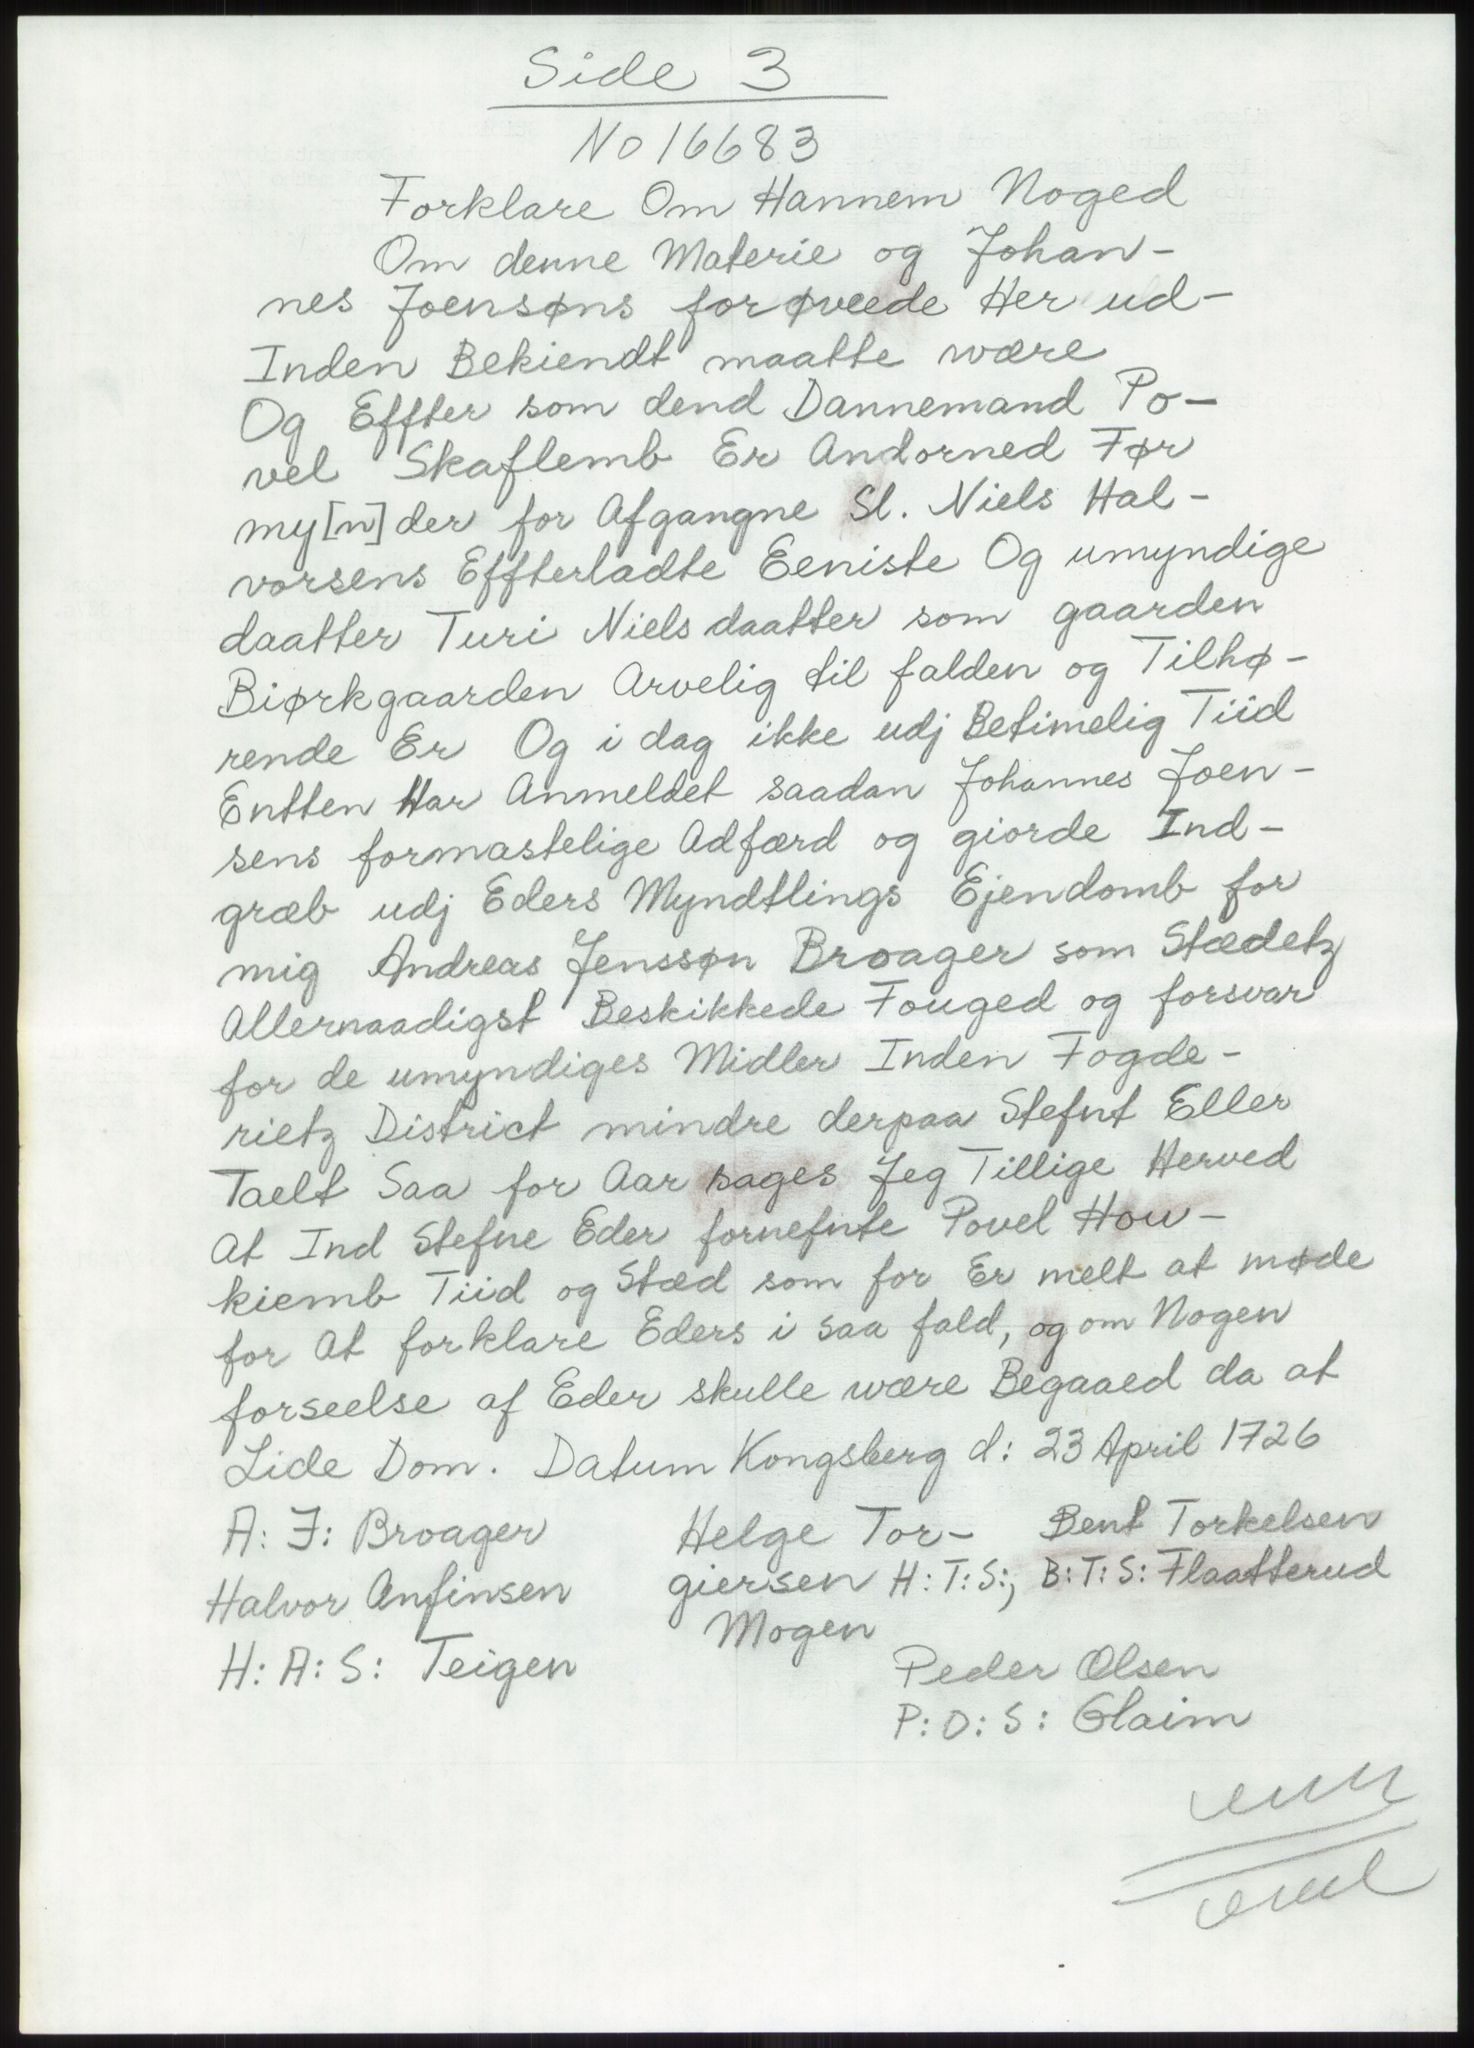 Side 3
No 16683
Forklare Om Hannem Noged
Om denne Materie og Johan-
nes Joensøns forøveede Her ud-
Inden Bekiendt maatte wære
Og Effter som dend Dannemand Po-
vel Skaflemb Er Andorned Før
my[n]der for Afgangne Sl. Niels Hal-
vorsens Effterladte Eeniste Og umyndige
daatter Turi Nielsdaatter som gaarden
Biørkgaarden Arvelig til falden og Tilhø-
rende Er Og i dag ikke udj Betimelig Tiid
Entten Har Anmeldet saadan Johannes Joen-
sens formastelige Adfærd og giorde Ind-
græb udj Eders Myndtlings Ejendomb for
mig Andreas Jenssøn Broager som Stædetz
Allernaadigst Beskikkede Fouged og forsvar
for de umyndiges Midler Inden Fogde-
rietz District mindre derpaa Stefnt Eller
Taelt Saa for Aar sages Jeg Tillige Herved
At Ind Stefne Eder fornefnte Povel Hou-
kiemb Tiid og Stæd som for Er melt at møde
for At forklare Eders i saa fald, og om Nogen
forseelse af Eder skulle wære Begaaed da at
Lide Dom. Datum Kongsberg d: 23 April 1726
A: J: Broager Helge Tor- Bent Torkelsen
Halvor Anfinsen giersen H: T: S:, B: T: S: Flaatterud
H: A: S: Teigen Mogen
Peder Olsen
P: O: S: Glaim